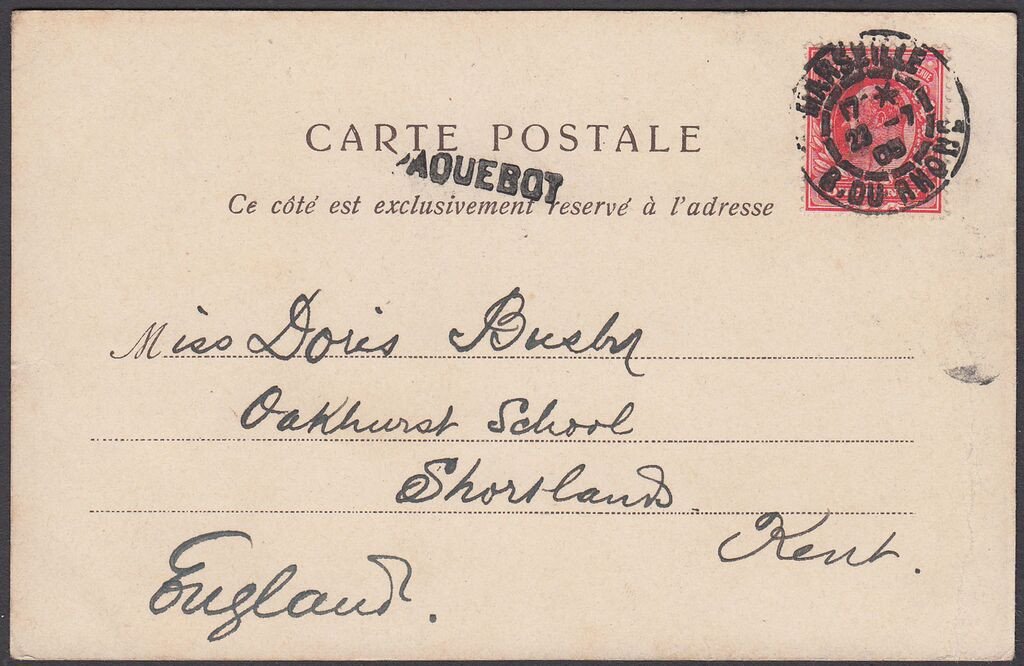 CARTE POSTALE
PAQUEBOT
Ce côté est exclusivement reservé à l'adresse
MARSEILLE
17- *
23 -7
05
B. DU RHONE
Miss Doris Busby
Oakhurst School
Shortlands
Kent.
England.